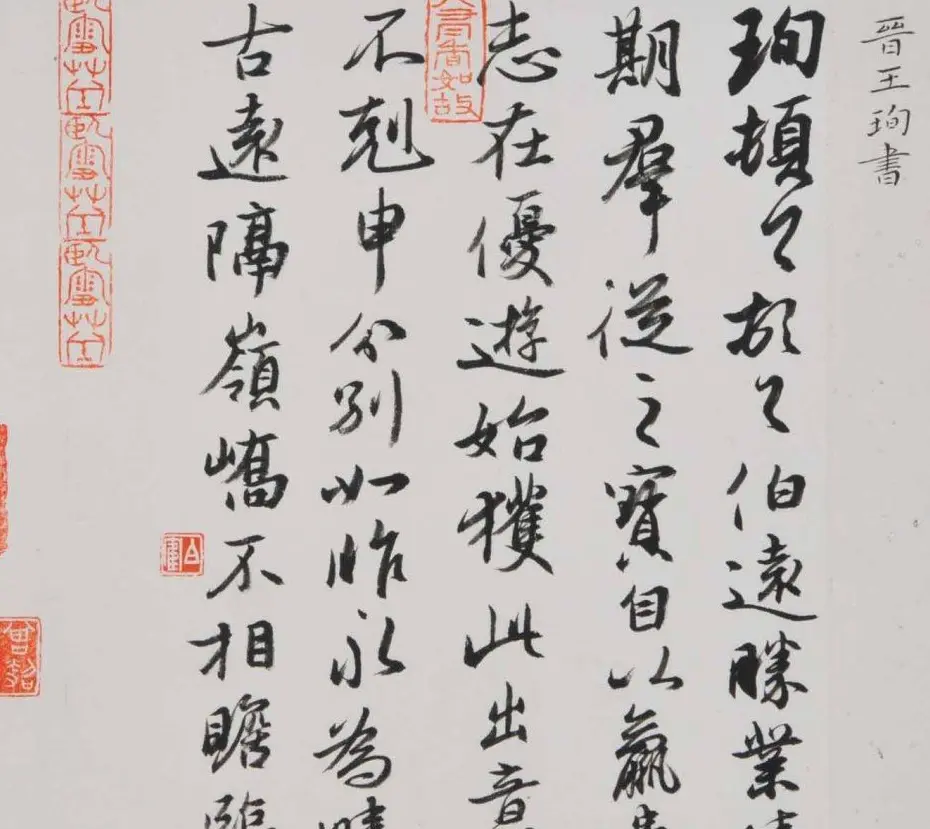 晉王珣書
珣頓首頓首伯遠勝業
期羣從之寶自以羸
志在優遊始獲此出意
不剋申分別如昨永為
古遠隔嶺嶠不相瞻臨